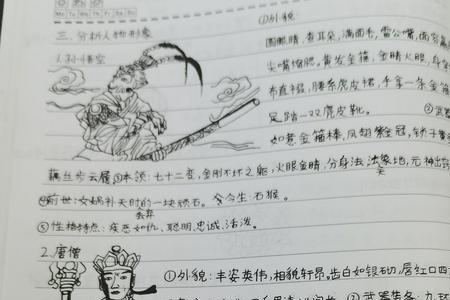 Mo Tu We Th Fr Sa Su
三.分析人物形象
1.孙悟空
①外貌:
圆眼睛,查耳朵,满面毛,雷公嘴,面容羸
尖嘴缩腮。黄发金箍,金睛火眼,身
布直裰,腰系虎皮裙,手拿一条金箍
足踏一双虎皮靴。
②武
如意金箍棒,凤翅紫金冠,锁子黄
藕丝步云履,③本领:七十二变,金刚不坏之躯,火眼金睛,分身法,法象地,元神出
天
④前世:女娲补天时的一块顽石。今生:石猴。
弃
⑤性格特点:疾恶如仇、聪明,忠诚、活泼。
2.唐僧
①外貌:丰姿英伟,相貌轩昂。齿白如银砌,唇红口四
②武器装备:九环